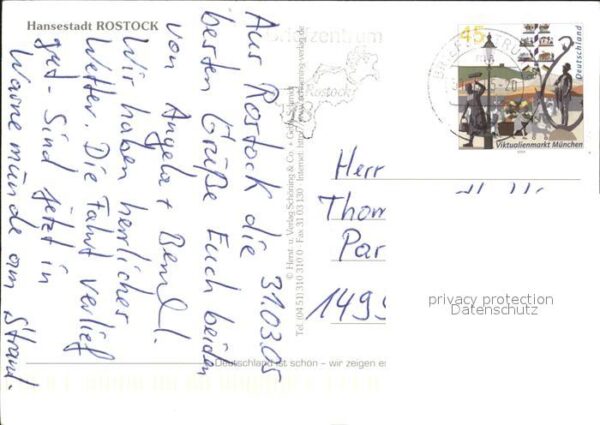 Hansestadt ROSTOCK
31.03.05
Aus Rostock die
besten Grüße Euch beiden
von Angela + Bernd.
Wir haben herrliches
Wetter. Die Fahrt verlief
gut. Sind jetzt in
Warnemünde am Strand.
Briefzentrum
Rostock
© Herst. u. Verlag Schöning & Co. + Gebr. Schmidt
Tel. (04 51) 310 310 0 · Fax 31 03 130 · Internet: http://www.schoening-verlag.de
45
Deutschland
Viktualienmarkt München
Herr
Thom
Par
1499
privacy protection
Datenschutz
Deutschland ist schön – wir zeigen es